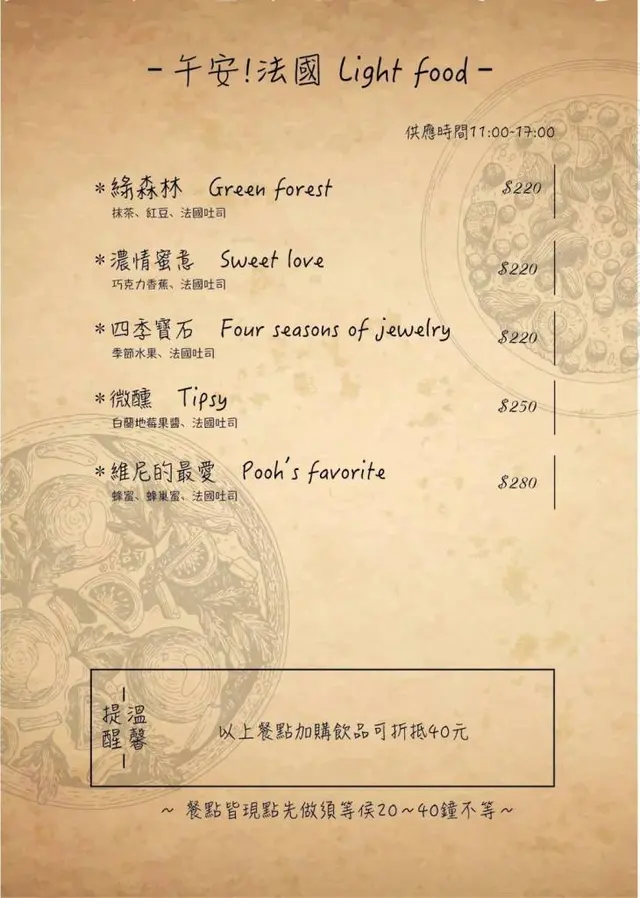 -午安!法國 Light food-
供應時間11:00-17:00
*綠森林 Green forest $220
抹茶、紅豆、法國吐司
*濃情蜜意 Sweet love $220
巧克力香蕉、法國吐司
*四季寶石 Four seasons of jewelry $220
季節水果、法國吐司
*微醺 Tipsy $250
白蘭地莓果醬、法國吐司
*維尼的最愛 Pooh's favorite $280
蜂蜜、蜂巢蜜、法國吐司
溫馨
提醒
以上餐點加購飲品可折抵40元
~ 餐點皆現點先做須等侯20~40鐘不等~